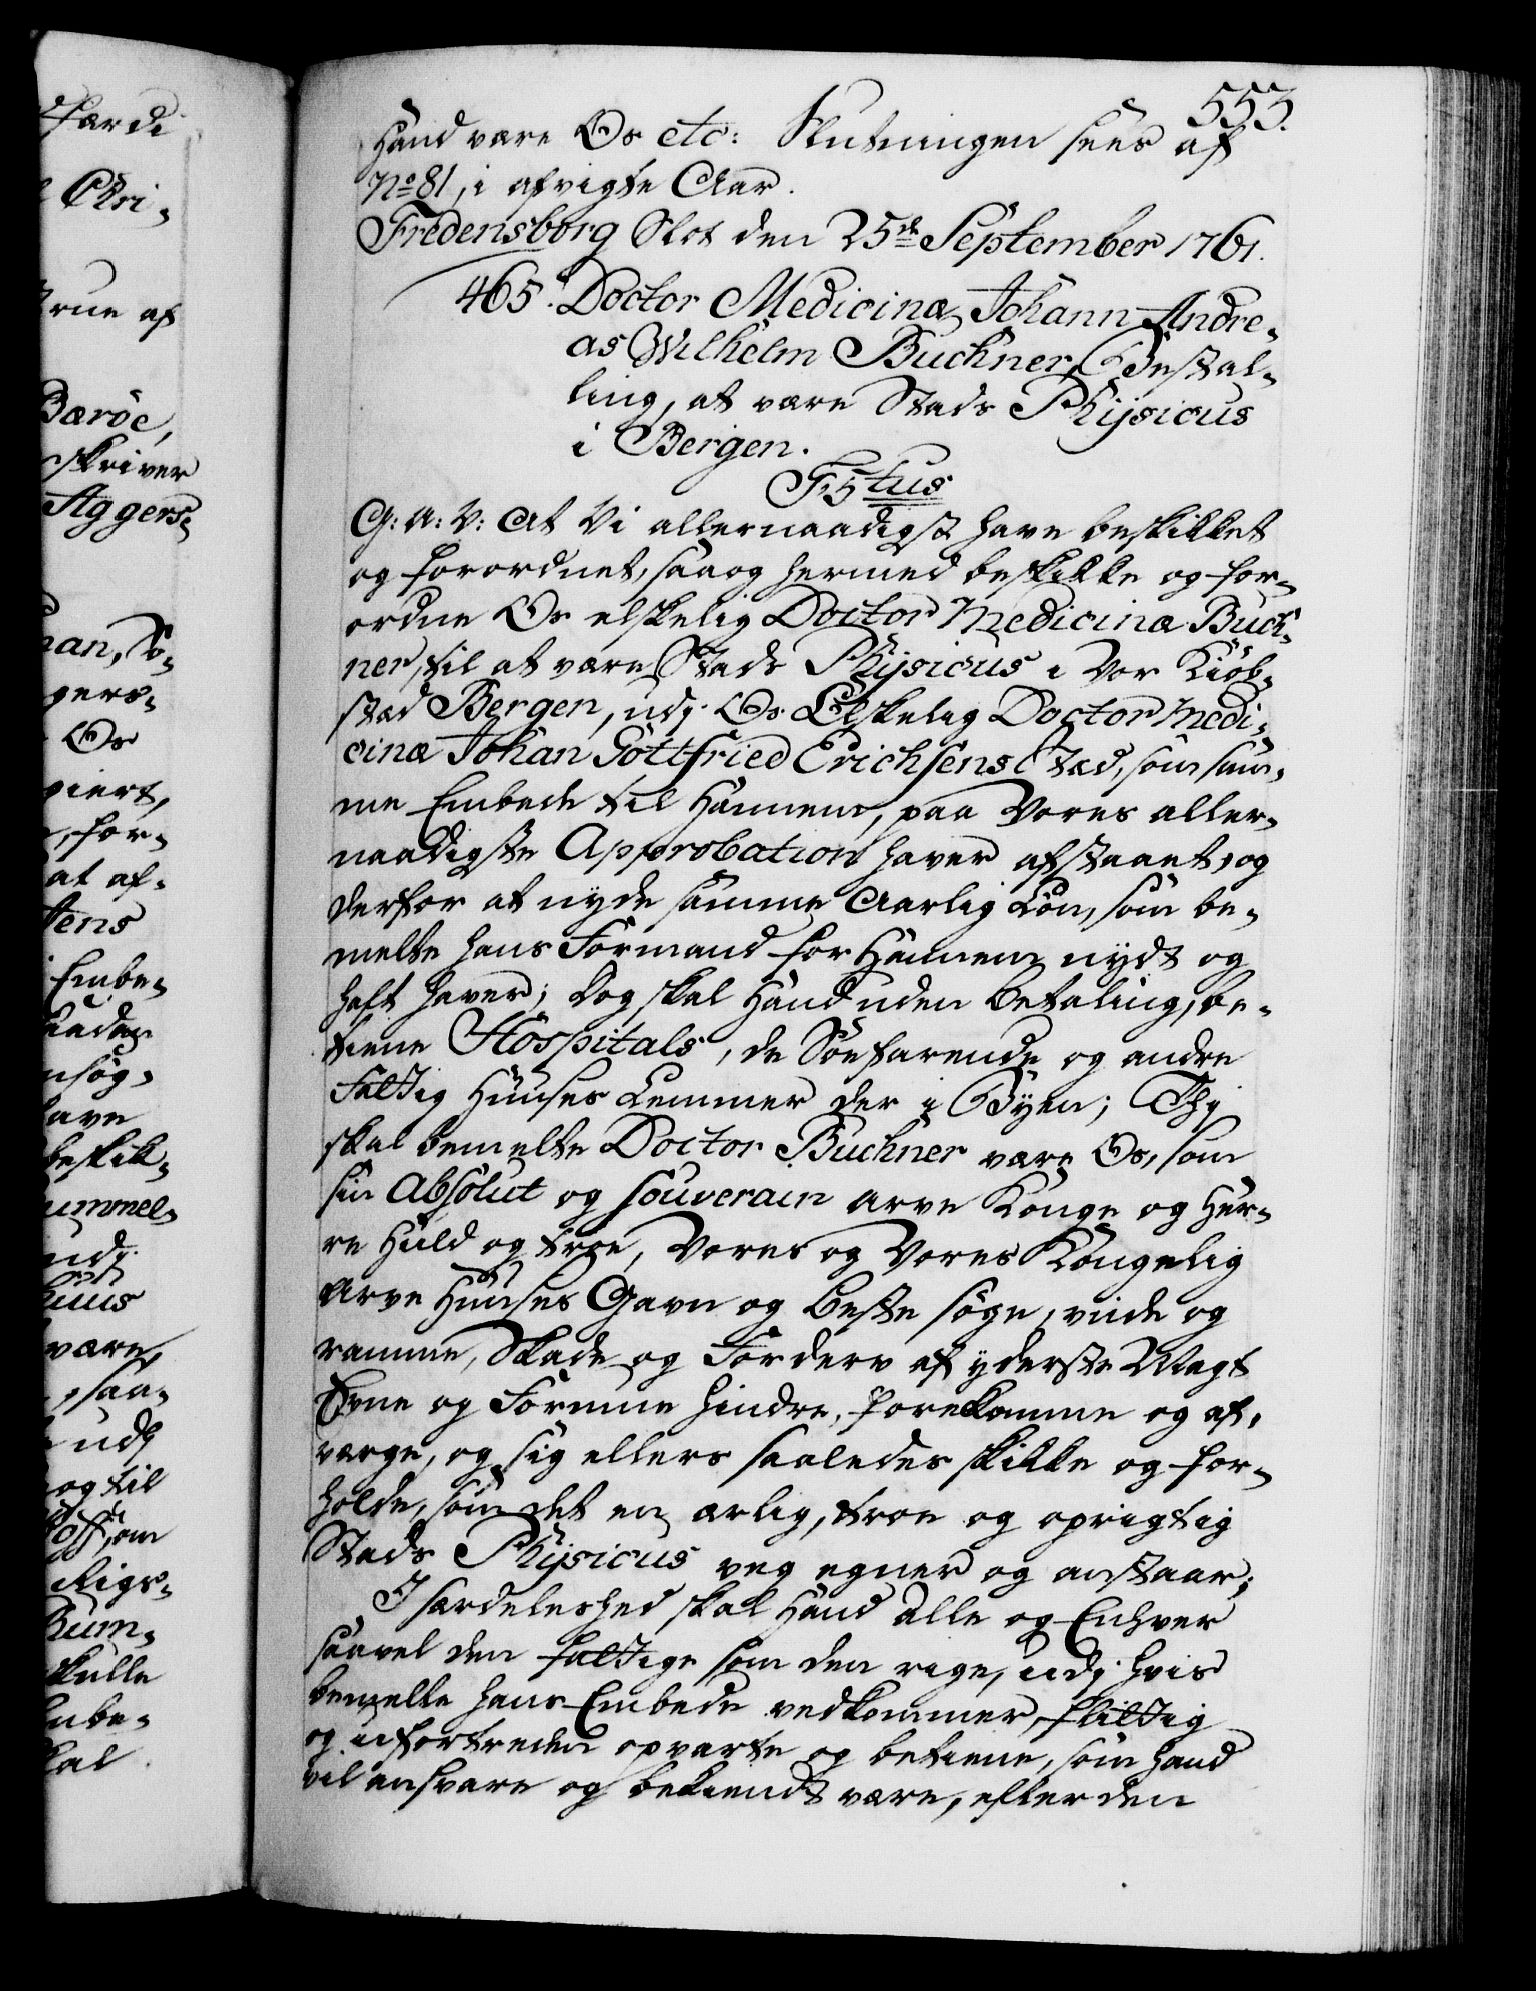 553.
Hand være Os etc: Slutningen sees af
No 81, i afvigte Aar.
Fredensborg Slot den 25de September 1761.
465. Doctor Medicinæ Johann Andre-
as Wilhelm Buchner, Bestal-
ling, at være Stads Physicus
i Bergen.
F5tus
G: A: V: At Vi allernaadigst have beskikket
og forordnet, saa og hermed beskikke og for-
ordne Os elskelig Doctor Medicinæ Buch-
ner, til at være Stads Physicus i Vor Kiøb-
stad Bergen, udj Os Elskelig Doctor Medi-
cinæ Johan Gottfried Erichsens Stæd, som sam-
me Embede til Hannem, paa Vores aller-
naadigste Approbation haver afstaaet, og
derfor at nyde samme Aarlig Løn, som be-
melte hans Formand for Hannem nydt og
haft haver; Dog skal Hand uden Betaling, be-
tiene Hospitals, de Søefarende og andre
Fattig Huuses Lemmer der i Byen; Thj
skal bemelte Doctor Buchner være Os, som
sin Absolut og Souverain Arve Konge og Her-
re Huld og troe, Vores og Vores Kongelig
Arve Huuses Gavn og Beste søge, viide og
ramme, Skade og Forderv af yderste Magt
Evne og Formue hindre, forekomme og af-
værge, og sig ellers saaledes skikke og for-
holde, som det en ærlig, troe og oprigtig
Stads Physicus vel egner og anstaar;
I særdeleshed skal Hand alle og Enhver
saavel den fattige som den rige, udj hvis
bemelte hans Embede vedkommer, flittig
og ufortrøden opvarte og betiene, som hand
vil ansvare og bekiendt være, efter den
færdi
Chri-
true af
Barøe,
skriver
Aggers-
gers-
Os
piert,
, for-
at af-
tens
Embe-
nsøg-
have
beskik-
ummel-
udj
huus
være,
, saa-
udj
og til
som
Rigs-
Bum-
skulle
mbe-
skal